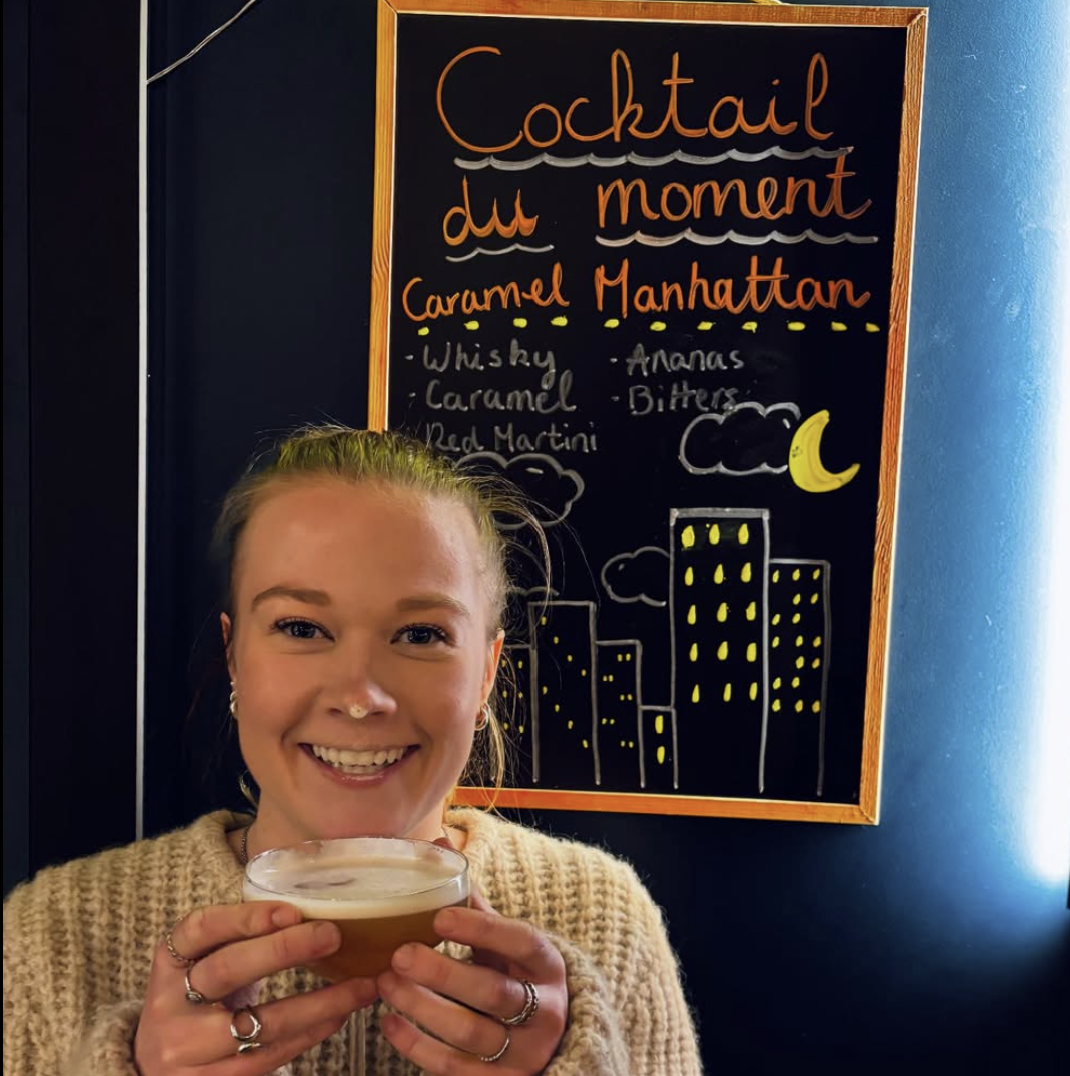 Cocktail
du moment
Caramel Manhattan
- Whisky
- Caramel
- Red Martini
- Ananas
- Bitters